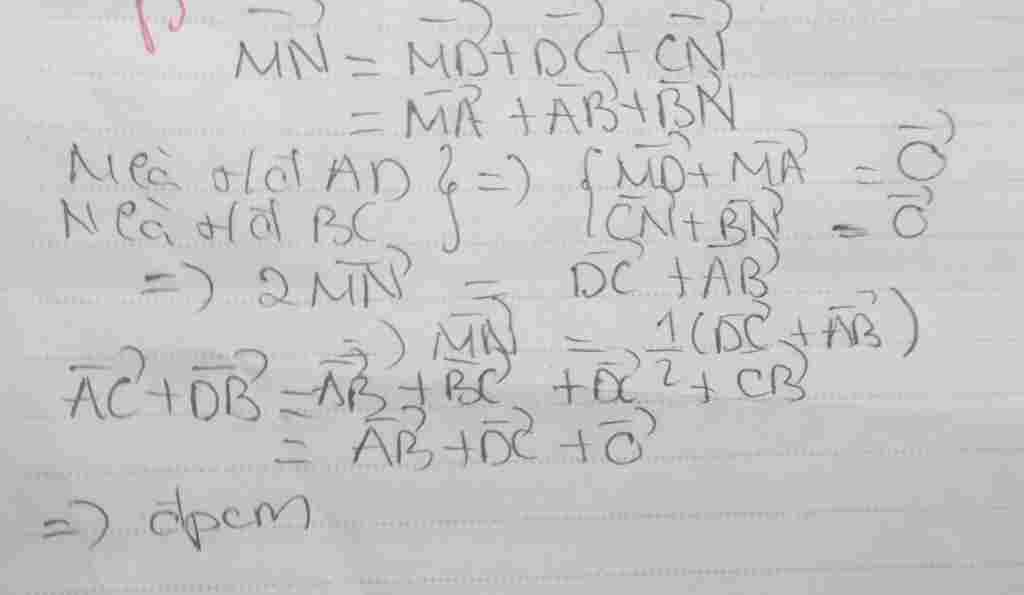 MN = MD + DC + CN
= MA + AB + BN
M là t/đ AD } => { MD + MA = O
N là t/đ BC } { CN + BN = O
=> 2MN = DC + AB
=> MN = 1/2 (DC + AB)
AC + DB = AB + BC + DC + CB
= AB + DC + O
=> đpcm